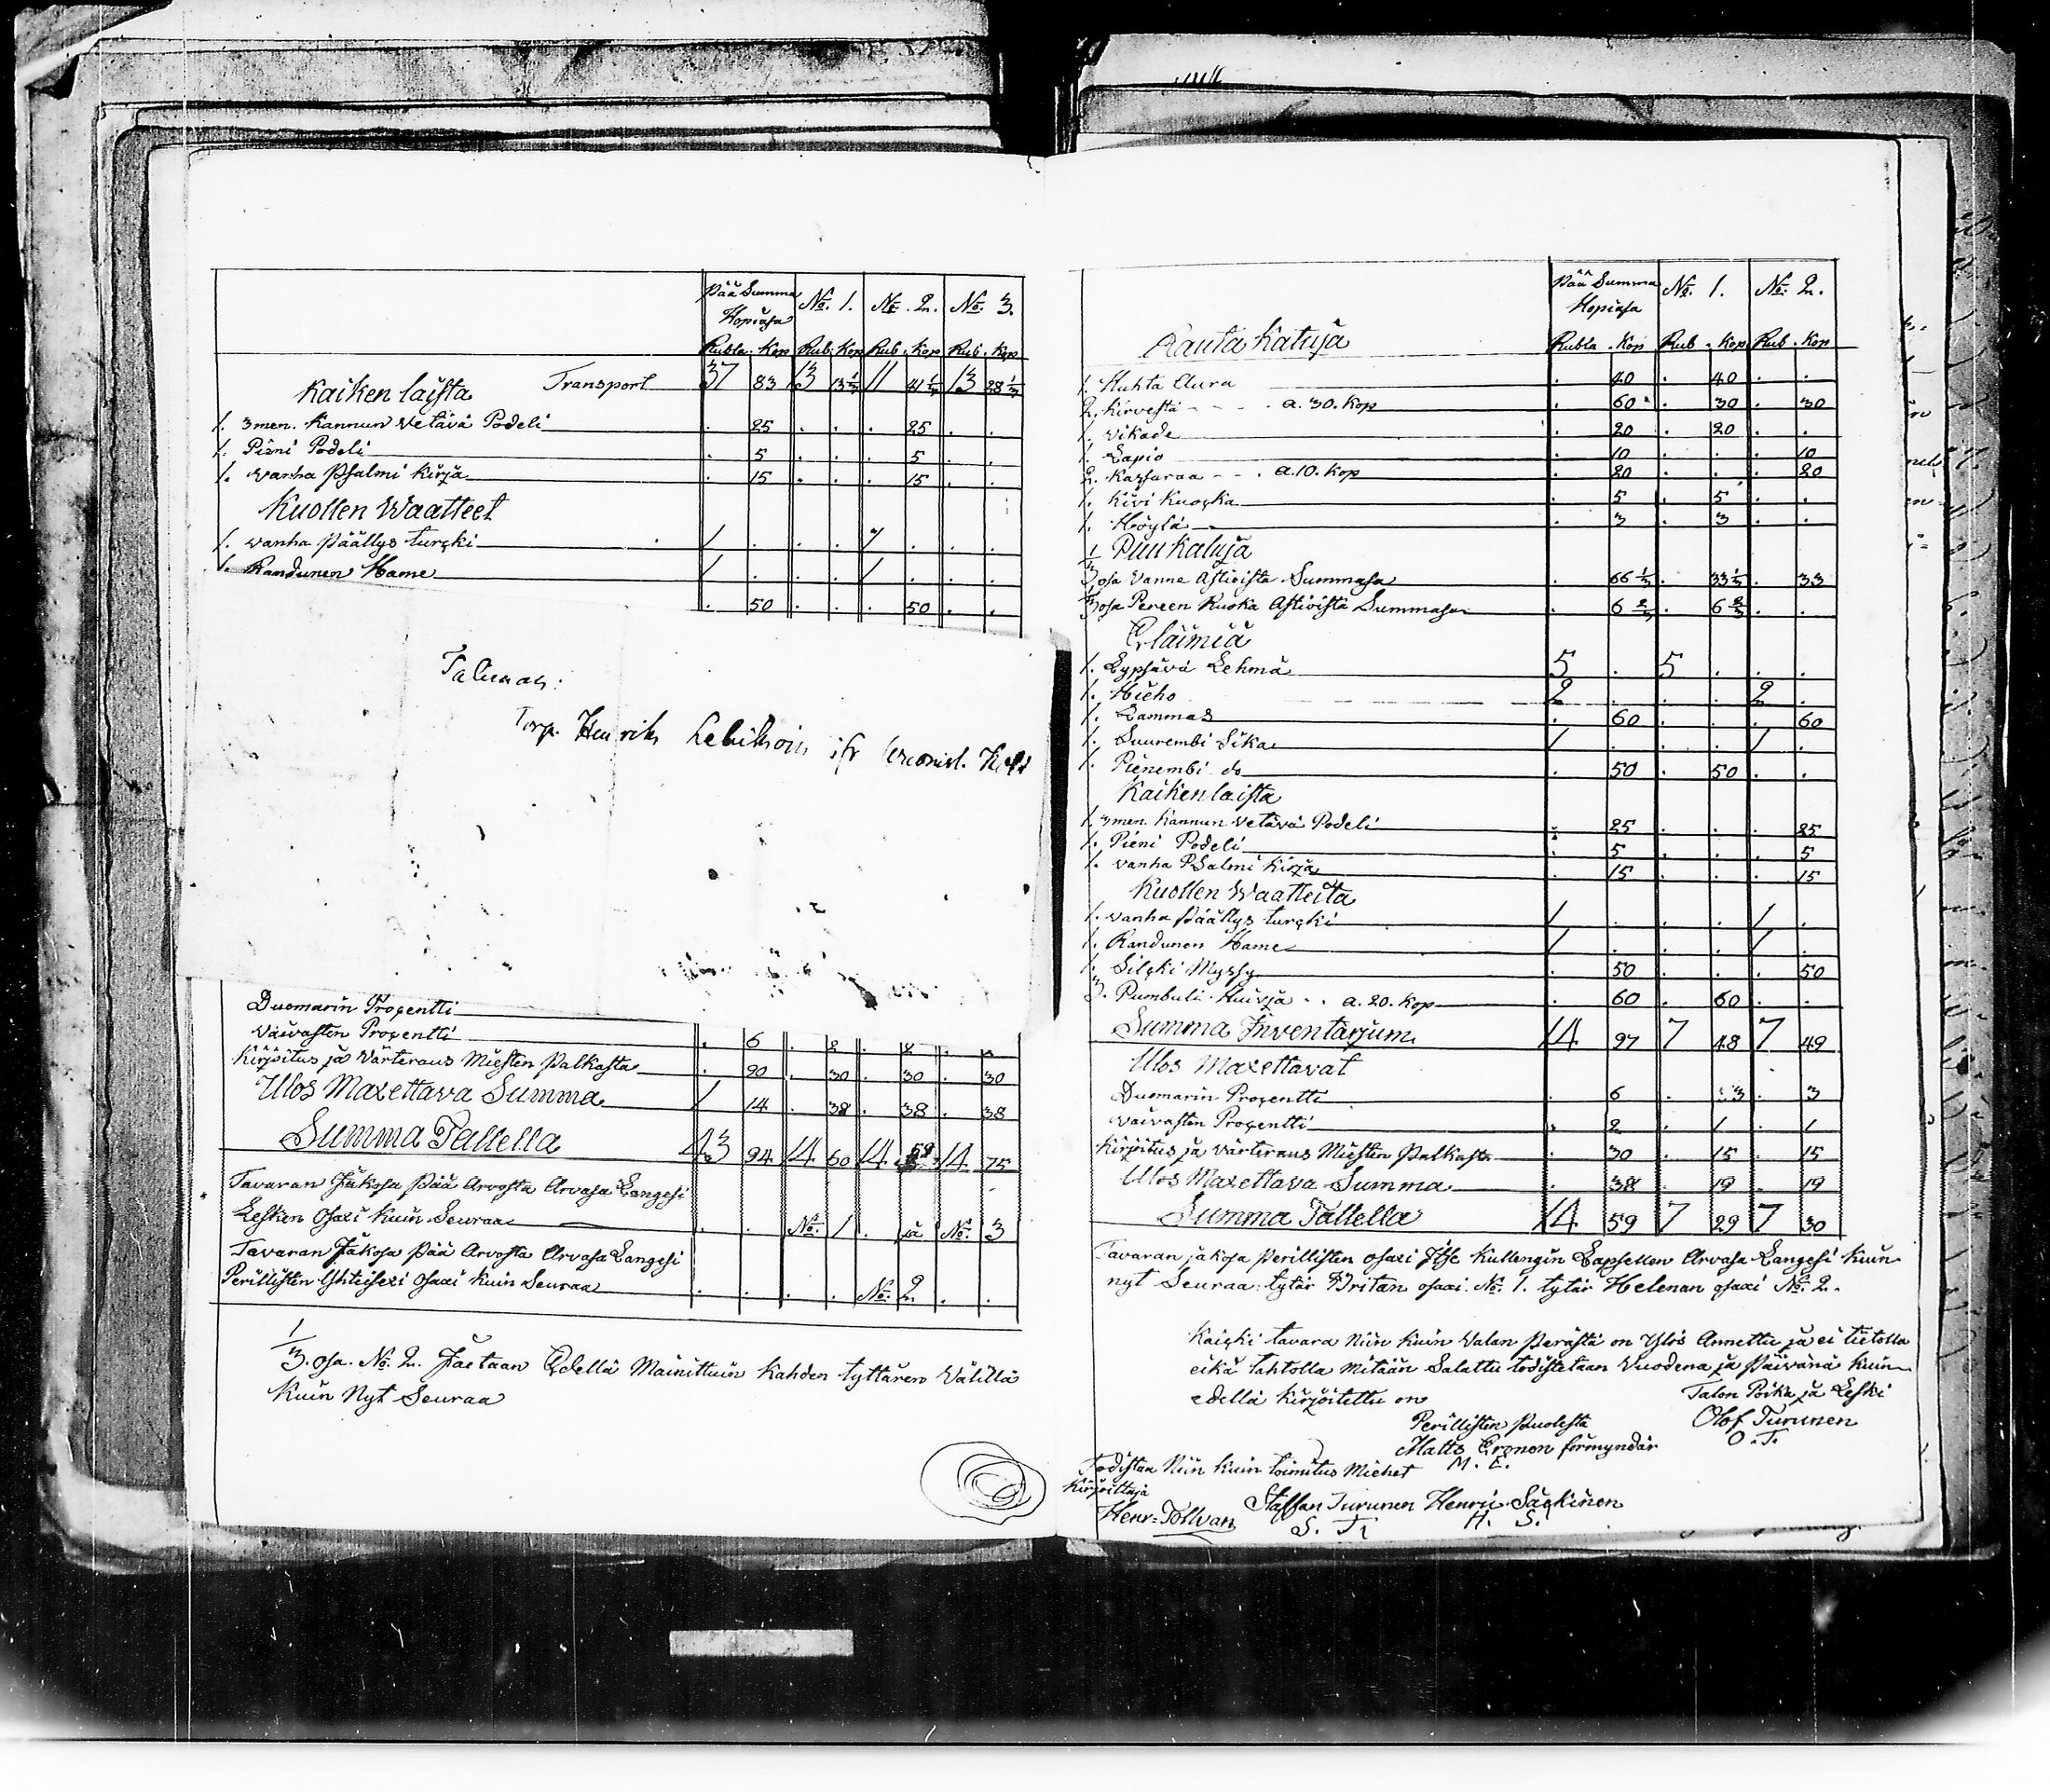 Pää Summa Hopiasa No. 1. No. 2. No. 3.
Rubla. Kop Rub. Kop Rub. Kop Rub. Kop
Kaikenlaista Transport 37 83 13 13 1/3 11 41 1/3 13 28 1/3
1. 3 men. Kannun Vetävä Podeli . 25 . . . 25 . .
1. Pieni Podeli . 5 . . . 5 . .
1. Wanha Psalmi Kirja . 15 . . . 15 . .
Kuollen Waatteet
1. Wanha Päällys turcki 1 . . . 1 . . .
1. Randunen Hame 1 . . . 1 . . .
. 50 . . . 50 . .
Torp. Henrik
Duomarin Procentti . 6 . 2 . 2 . 2
Vaivasten Procentti
Kirjoitus ja Värteraus Miesten Palkasta . 90 . 30 . 30 . 30
Ulos Maxettava Summa 1 14 . 38 . 38 . 38
Summa Tallella 43 94 14 60 14 59 14 75
Tavaran Jakosa Pää Arvosta Arvasa Langesi
Lesken Osaxi Kuin Seuraa . . No. 1 . ja No. 3
Tavaran Jakosa Pää Arvosta Arvasa Langesi
Perillisten Yhteisexi Osaxi Kuin Seuraa . . . . No. 2 . .
1/3. osa. No. 2. Jaetaan Edellä Mainittuin Kahden tyttären Välillä
Kuin Nyt Seuraa
Pää Summa Hopiasa No. 1. No. 2.
Rauta Kaluja Rubla. Kop Rub. Kop Rub. Kop
1. Kuhta Aura . 40 . 40 . .
2. Kirvestä - - - - a. 30. Kop . 60 . 30 . 30
1. Vikade . 20 . 20 . .
1. Lapio . 10 . . . 10
2. Kassaraa - - - a. 10. Kop . 20 . . . 20
1. Kivi Kuocka . 5 . 5 . .
1. Höylä . 3 . 3 . .
Puu Kaluja
1/3 osa Vanne Astioista Summasa . 66 1/3 . 33 1/3 . 33
1/3 osa Pereen Ruoka Astioista Summasa . 6 2/3 . 6 2/3 . .
Eläimiä
1. Lypsävä Lehmä 5 . 5 . . .
1. Hieho 2 . . . 2 .
1. Lammas . 60 . . . 60
1. Suurembi Sika 1 . . . 1 .
1. Pienembi do . 50 . 50 . .
Kaikenlaista
1. 3 men. Kannun Vetävä Podeli . 25 . . . 25
1. Pieni Podeli . 5 . . . 5
1. Vanha Psalmi Kirja . 15 . . . 15
Kuollen Waatteita
1. Vanha Päällys turcki 1 . . . 1 .
1. Randunen Hame 1 . . . 1 .
1. Silcki Myssy . 50 . . . 50
3. Pumbuli Huivja . . a. 20. Kop . 60 . 60 . .
Summa Inventarjum 14 97 7 48 7 49
Ulos Maxettavat
Duomarin Procentti . 6 . 3 . 3
Vaivasten Procentti . 2 . 1 . 1
Kirjoitus ja Värteraus Miesten Palkasta . 30 . 15 . 15
Ulos Maxettava Summa . 38 . 19 . 19
Summa Tallella 14 59 7 29 7 30
Tavaran jakosa Perillisten osaxi Itse Kullengin Lapsellen Arvasa Langesi Kuin
nyt Seuraa: tytär Britan osaxi No. 1. tytär Helenan osaxi No. 2.
Kaicki tavara Niin Kuin Valan Perästä on Ylös Annettu ja ei tietolla
eikä tahtolla mitään Salattu todistetaan Vuodena ja Päivänä Kuin
edellä Kirjoitettu on Talon Poika ja Leski
Perillisten Puolesta Olof Turunen
Matts Eronen förmyndär O. T.
M. E.
Todistaa Niin Kuin toimitus Miehet
Kirjoittaja
Henr: Tollvan Staffan Turunen Henric Säckinen
S. T. H. S.